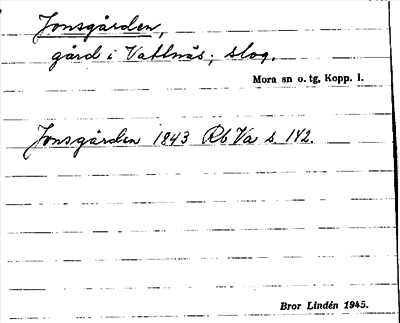 Jonsgården,
gård i Vattnäs; slog.
Mora sn o. tg, Kopp. l.
Jonsgården 1843 Rb Va s. 142.
Bror Lindén 1945.